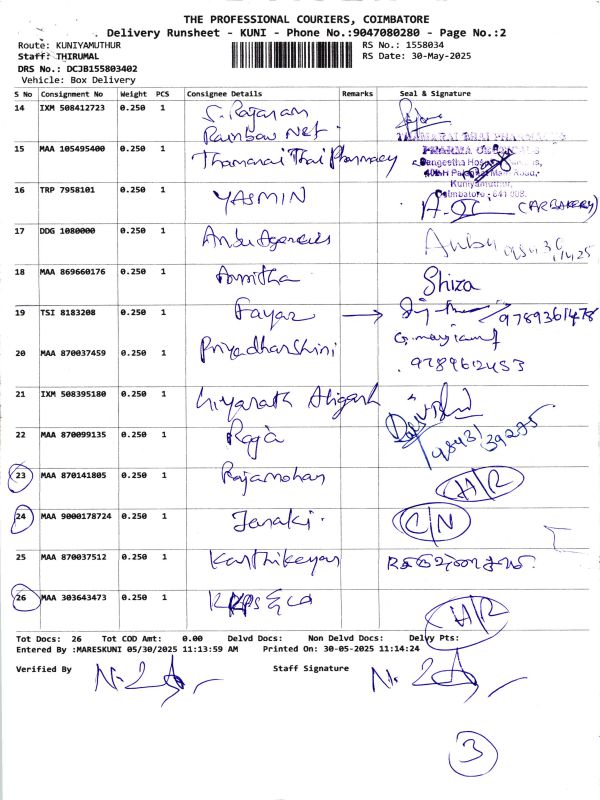 THE PROFESSIONAL COURIERS, COIMBATORE
Delivery Runsheet - KUNI - Phone No.:9047080280 - Page No.:2
Route: KUNIYAMUTHUR RS No.: 1558034
Staff: THIRUMAL RS Date: 30-May-2025
DRS No.: DCJB155803402
Vehicle: Box Delivery
S No Consignment No Weight PCS Consignee Details Remarks Seal & Signature
14 IXM 508412723 0.250 1 S. Rajaram
Rainbow Net.
15 MAA 105495400 0.250 1 Thamarai Thai Pharmacy
THAMARAI THAI PHARMACY
PHARMA
Sangeetha
Road,
Kuniyamuthur,
Coimbatore - 641 008.
16 TRP 7958101 0.250 1 YASMIN (AR BAKERY)
17 DDG 1080000 0.250 1 Anbu Agencies Anbu
18 MAA 869660176 0.250 1 Amitha Shiza
19 TSI 8183208 0.250 1 Fayaz → 9789361478
20 MAA 870037459 0.250 1 Priyadharshini
9789612453
21 IXM 508395180 0.250 1
22 MAA 870099135 0.250 1 Raja 9843139275
23 MAA 870141805 0.250 1 Rajamohan H/R
24 MAA 9000178724 0.250 1 Janaki. C/N
25 MAA 870037512 0.250 1 Karthikeyan
26 MAA 303643473 0.250 1 H/R
Tot Docs: 26 Tot COD Amt: 0.00 Delvd Docs: Non Delvd Docs: Delvy Pts:
Entered By :MARESKUNI 05/30/2025 11:13:59 AM Printed On: 30-05-2025 11:14:24
Verified By Staff Signature
3